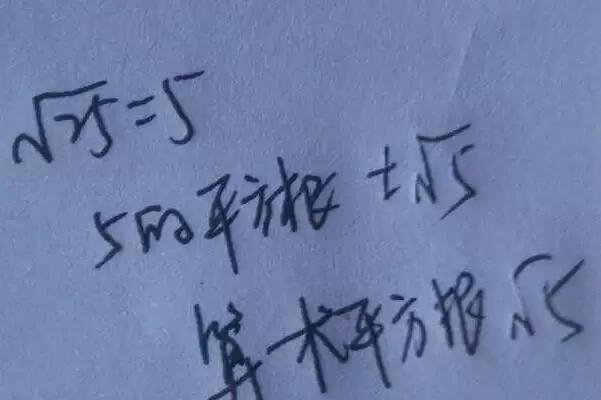 √25=5
5的平方根 ±√5
算术平方根 √5